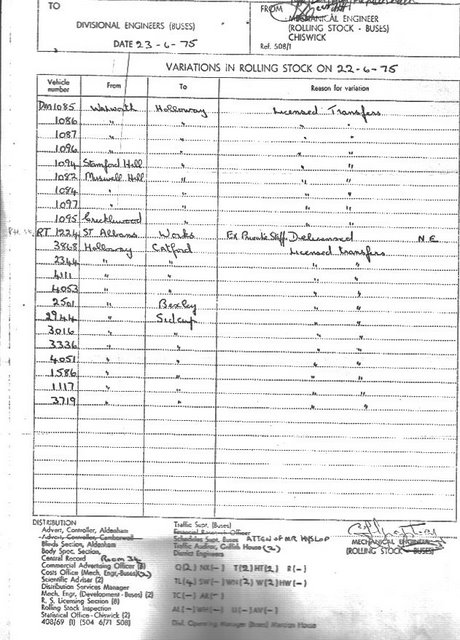 TO
DIVISIONAL ENGINEERS (BUSES)
DATE 23-6-75
FROM
MECHANICAL ENGINEER
(ROLLING STOCK - BUSES)
CHISWICK
Ref. 508/1
VARIATIONS IN ROLLING STOCK ON 22-6-75
Vehicle number From To Reason for variation
DM1085 Walworth Holloway Licensed Transfers
1086 " " " "
1087 " " " "
1096 " " " "
1094 Stamford Hill " " "
1082 Muswell Hill " " "
1084 " " " "
1097 " " "
1095 Cricklewood " " "
RT 1224 St Albans Works Ex Private Staff Delicensed N.E.
3868 Holloway Catford Licensed Transfers
2344 " " " "
4111 " " " "
4053 " " " "
2501 " Bexley " "
2944 " Sidcup " "
3016 " " " "
3336 " " " "
4051 " " " "
1586 " " " "
1117 " " " "
3719 " " " "
DISTRIBUTION
Advert, Controller, Aldenham
Advert, Controller, Camberwell
Blinds Section, Aldenham
Body Spec. Section,
Central Record Room 36
Commercial Advertising Officer (8)
Costs Office (Mech, Engr, Buses)(2)
Scientific Adviser (2)
Distribution Services Manager
Mech, Engr, (Development - Buses) (2)
R. S. Licensing Section (8)
Rolling Stock Inspection
Statistical Office - Chiswick (2)
403/69 (1) (504 6/71 508)
Traffic Supt. (Buses)
Schedules Supt. Buses ATTEN OF MR HYSLOP
Traffic Audits, Griffith House (2)
District Engineers
Q(2) NX(-) T(2)HT(2) R(-)
TL(4) SW(-) WN(2) W(2)HW(-)
TC(-) AR(-)
AL(-) WH(-) U(-) AV(-)
Divl. Operating Manager (Buses) Manson House
MECHANICAL ENGINEER
(ROLLING STOCK - BUSES)